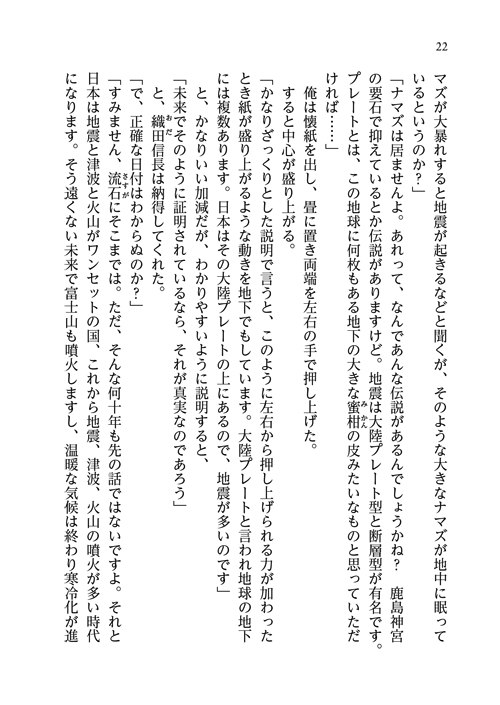 22
マズが大暴れすると地震が起きるなどと聞くが、そのような大きなナマズが地中に眠って
いるというのか？」
「ナマズは居ませんよ。あれって、なんであんな伝説があるんでしょうかね？　鹿島神宮
の要石で抑えているとか伝説がありますけど。地震は大陸プレート型と断層型が有名です。
プレートとは、この地球に何枚もある地下の大きな蜜柑の皮みたいなものと思っていただ
ければ……」
俺は懐紙を出し、畳に置き両端を左右の手で押し上げた。
すると中心が盛り上がる。
「かなりざっくりとした説明で言うと、このように左右から押し上げられる力が加わった
とき紙が盛り上がるような動きを地下でもしています。大陸プレートと言われ地球の地下
には複数あります。日本はその大陸プレートの上にあるので、地震が多いのです」
と、かなりいい加減だが、わかりやすいように説明すると、
「未来でそのように証明されているなら、それが真実なのであろう」
と、織田信長は納得してくれた。
「で、正確な日付はわからぬのか？」
「すみません、流石にそこまでは。ただ、そんな何十年も先の話ではないですよ。それと
日本は地震と津波と火山がワンセットの国、これから地震、津波、火山の噴火が多い時代
になります。そう遠くない未来で富士山も噴火しますし、温暖な気候は終わり寒冷化が進